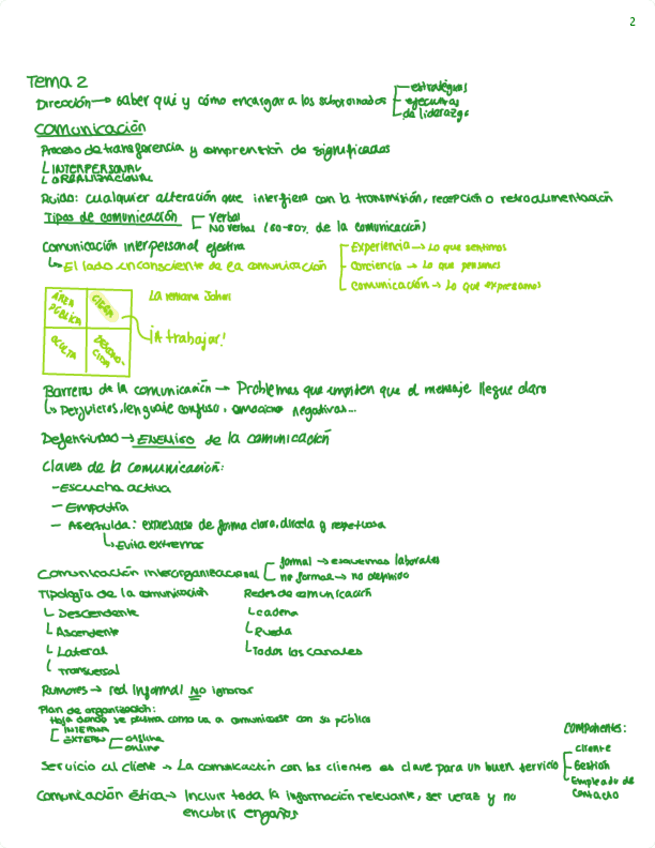 2
Tema 2
Dirección → saber qui y cómo encargar a los subordinados
estratégias
ejecutivas
de liderazgo
Comunicación
Proceso de transferencia y comprensión de significados
INTERPERSONAL
ORGANIZACIONAL
Ruido: cualquier alteración que interfiera con la transmisión, recepción o retroalimentación
Tipos de comunicación
verbal
No verbal (60-80% de la comunicación)
Comunicación interpersonal efectiva
El lado inconsciente de la comunicación
Experiencia → Lo que sentimos
Conciencia → Lo que pensamos
Comunicación → Lo que expresamos
ÁREA PÚBLICA
CIEGA
OCULTA
DESCONOCIDA
La ventana Johari
¡A trabajar!
Barreras de la comunicación → Problemas que impiten que el mensaje llegue claro
Perjuicios, lenguaje confuso, emociones negativas...
Defensividad → ENEMIGO de la comunicación
Claves de la comunicación:
- Escucha activa
- Empatía
- Asertividad: expresarse de forma clara, directa y respetuosa
Evita extremos
Comunicación interorganizacional
formal → esquemas laborales
no formal → no definido
Tipología de la comunicación
Descendente
Ascendente
Lateral
Transversal
Redes de comunicación
cadena
Rueda
Todos los canales
Rumores → red informal No ignorar
Plan de organización:
Hoja donde se plasma como va a comunicarse con su público
INTERNA
EXTERN
offline
online
Servicio al cliente → La comunicación con los clientes es clave para un buen servicio
Componentes:
cliente
Gestión
Empleado de contacto
Comunicación ética → Incluir toda la información relevante, ser veraz y no
encubrir engaños